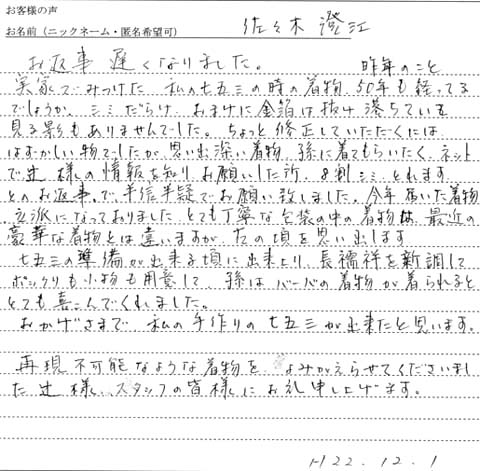 お客様の声
お名前(ニックネーム・匿名希望可) 佐々木 澄江
お返事 遅くなりました。 昨年のこと
実家でみつけた 私の七五三の時の着物、50年も経ってる
でしょうか、シミだらけ、おまけに金箔は抜け落ちている
見る影もありませんでした。ちょっと修正していただくには
はずかしい物でしたが思い出深い着物、孫に着てもらいたく、ネット
で辻様の情報を知り お願いした所、8割シミ とれます
とのお返事。で半信半疑でお願い致しました。今年 届いた着物
立派になっておりました。とても丁寧な包装の中の着物は、最近の
豪華な着物とは違いますが、 の頃を思い出します
七五三の準備が出来る頃に出来上り、長襦袢を新調して
ポックリも小物も用意して、孫はバーバの着物が着られると
とても喜こんでくれました。
おかげさまで、私の手作りの七五三が出来たと思います。
再現不可能なような着物を、よみがえらせてくださいまし
た辻様、スタッフの皆様にお礼申し上げます。
H22.12.1